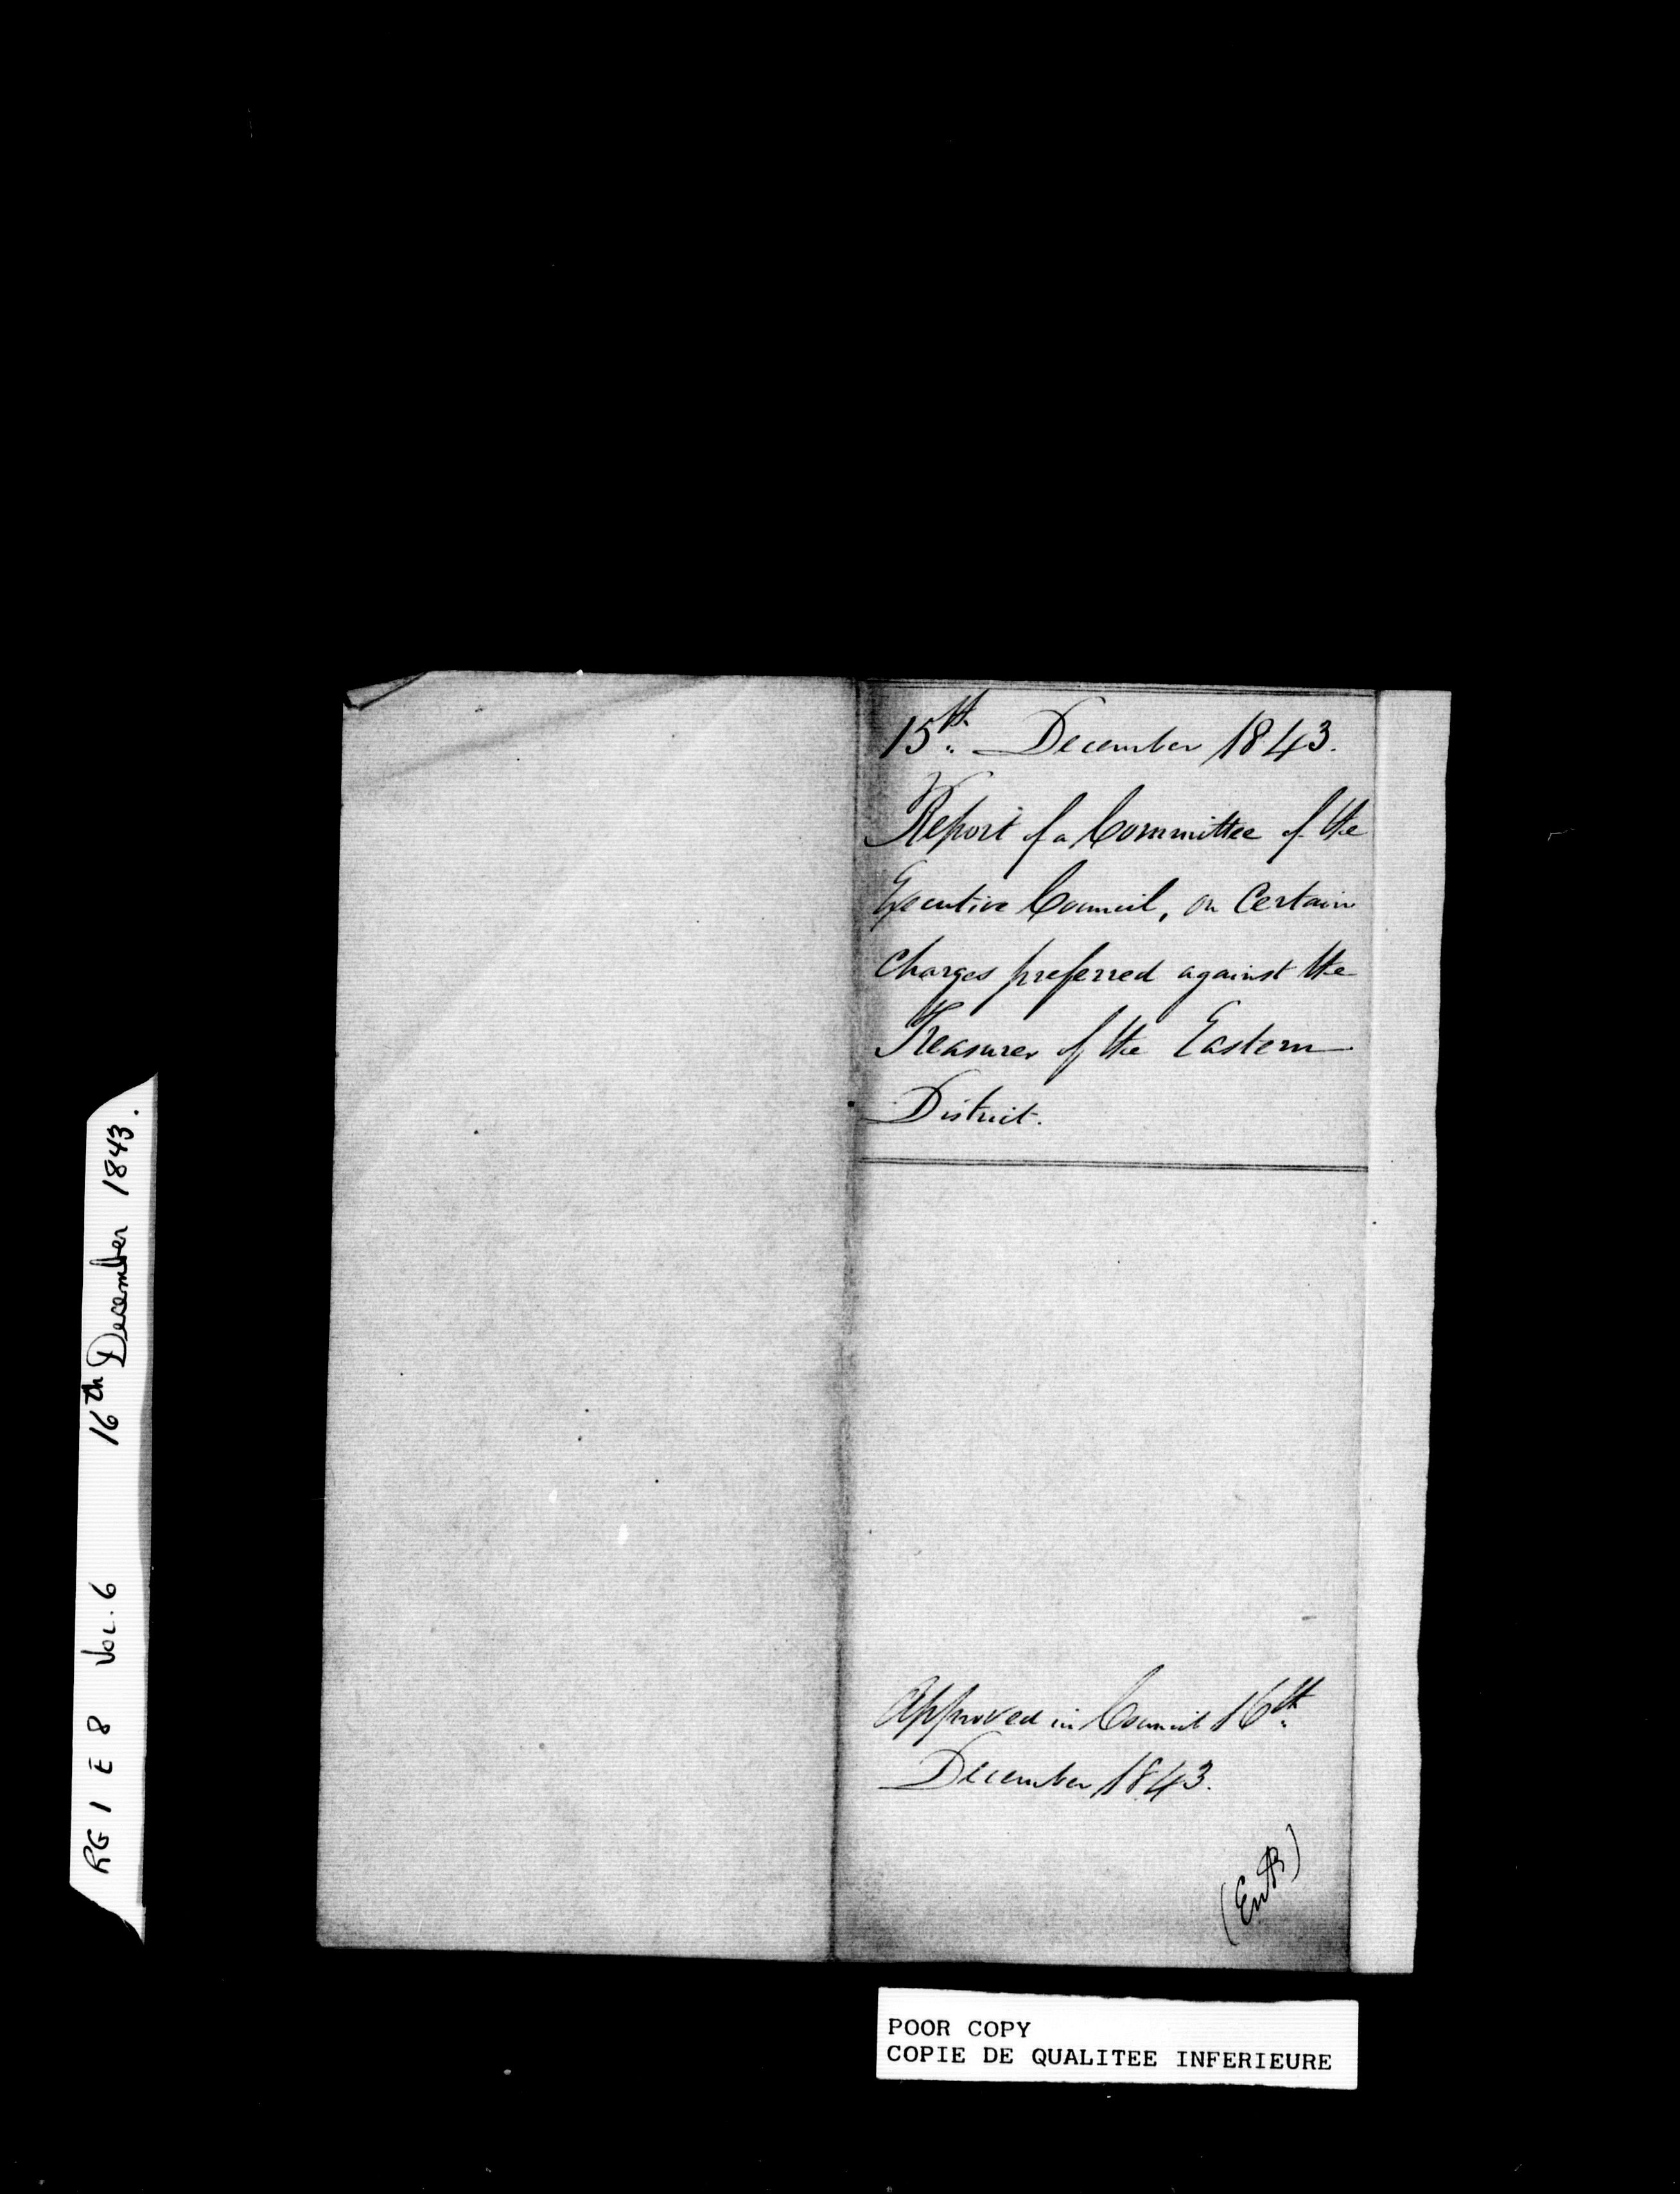 15th December 1843.
Report of a Committee of the
Executive Council, on Certain
Charges preferred against the
Treasurer of the Eastern
District.
Approved in Council 16th
December 1843.
RG 1 E 8 Vol. 6 16th December 1843.
POOR COPY
COPIE DE QUALITEE INFERIEURE